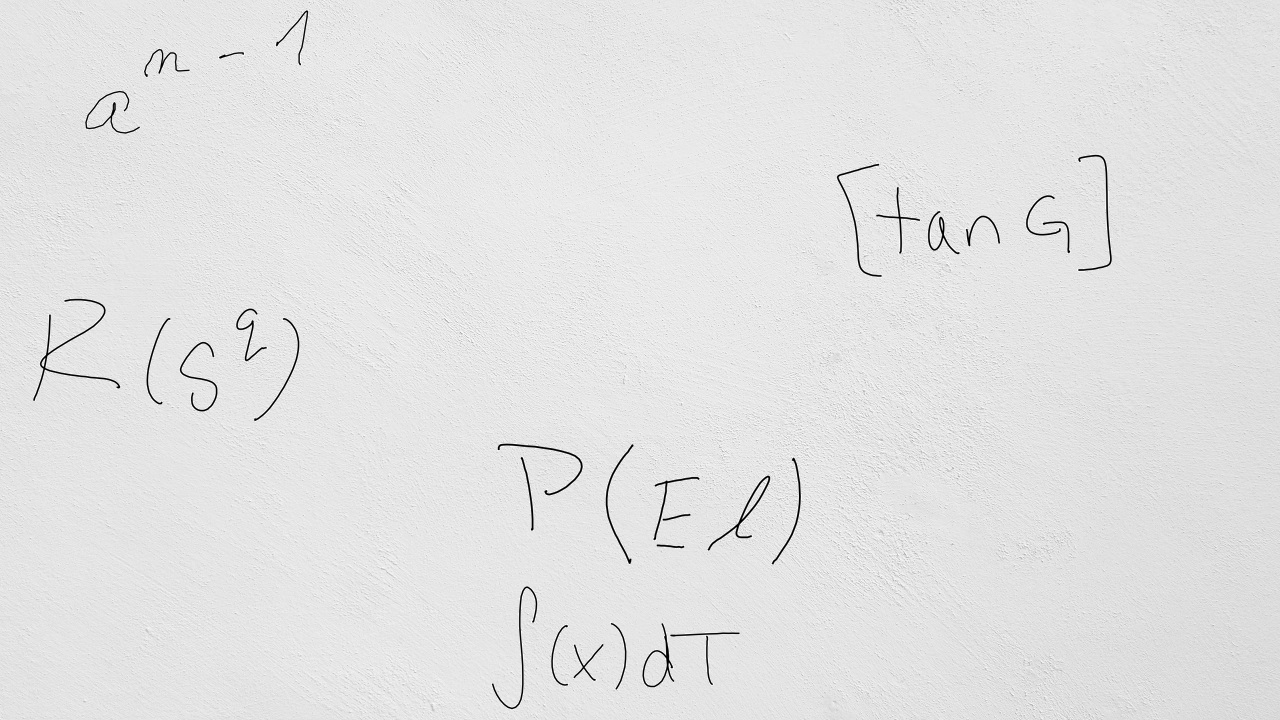 a^{n-1}
[tan G]
R(s^q)
P(E l)
∫(x)dT